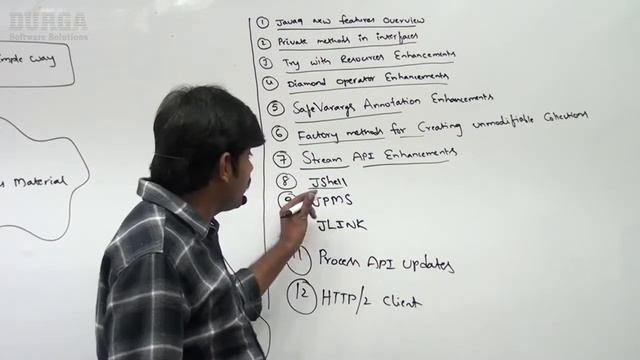 DURGA
Software Solutions
imple way
s Material
① Java9 new features overview
② Private methods in interfaces
③ Try with Resources Enhancements
④ Diamond operator Enhancements
⑤ SafeVarargs Annotation Enhancements
⑥ Factory methods for Creating unmodifiable Collections
⑦ Stream API Enhancements
⑧ JShell
⑨ JPMS
JLINK
11 Process API updates
12 HTTP/2 Client